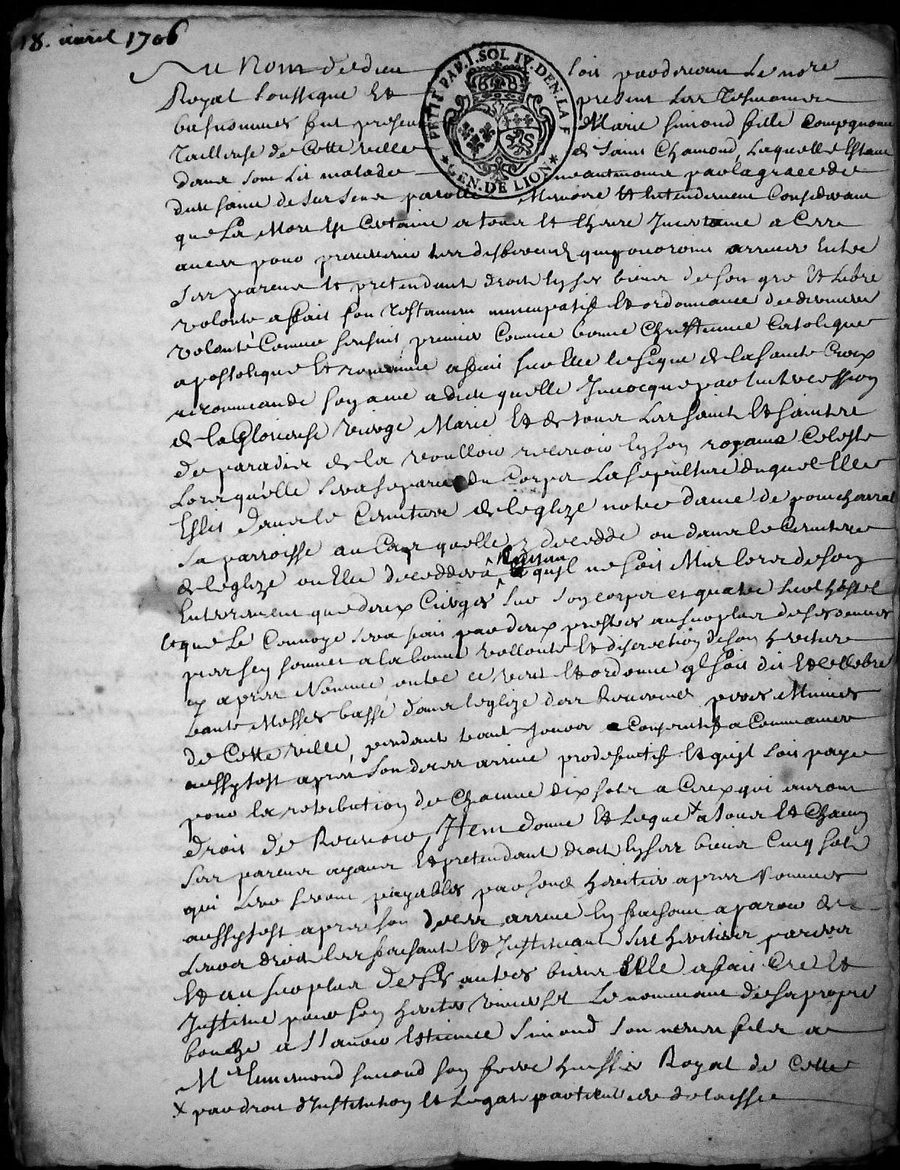 18. avril 1706
Au Nom de dieu soit pardevant Le no.re
Royal soussigne Et present Les tesmoins
bas nommes fut presente Marie simond fille Compagnone
tailleuse de Cette ville de Saint Chamond, Laquelle Estant
dans son Lit malade neautmoins par la grace de
dieu saine de ses sens parolle Memoire Et Entendement Considerant
que La Mort Est Certaine a tous Et L'heure Incertaine a Cette
pour prevenir Les differents quy pouroient arriver Entre
Ses parens Et pretendant droit En ses biens de son gre Et Libre
volonte a fait son testament nuncupatif Et ordonnance de derniere
volonté Comme sensuit premier Comme bonne Chrestienne Catolique
apostolique Et romaine a fait sur Elle le signe de la sainte Croix
recommande son ame a dieu quelle Invocque par Lintercession
de la Glorieuse vierge Marie Et de tous Les saints Et saintes
de paradis de la voulloir recevoir En son royaume Celeste
Lors quelle sera separée du Corps La sepulture duquel Elle
Eslit dans le Cimetiere de leglize notre dame de
sa parroisse au Cas quelle y decedde ou dans le Cimetiere
de leglize ou Elle deceddera quil ne soit Mis lors de son
Enterrement que deux Cierges sur son corps et quatre sur Lhostel
Et que Le Convoye sera fait par deux prestres au surplus de ses œuvres
pies sen soumet a la bonne vollonte Et discretion de son heritiere
cy apres Nommé outre ce veut Et ordonne q.l soit dit Et Cellebre
Cente Messes basse dans leglize des Reverends peres Minimes
de Cette ville, pendant Cent Jours Consecutifs a Commancer
aussytost apres son deces arrive Et quil soit paye
pour la retribution de Chacune dix sols a Ceux qui auront
droit de Recevoir, Item donne Et Legue x a tous Et Chacun
Ses parens ayans Et pretendant droit En ses biens Cinq sols
qui Leur seront payables par sond. heritier apres Nommé
aussytost apres son deces arrive
Leurs droits les faisants Et Instituant Ses heritiers particuliers
Et au surplus de ses autres biens Elle a fait Cree Et
Institue pour son heritier universel Le nommant de sa propre
bouche a scavoir Estienne Simond son neveu fils de
M.e Ennemond simond son frere huissier Royal de Cette
x par droit d'Institution Et Legat particuliere delaisse
PETIT PAP. 1. SOL IV. DEN. LA F
GEN. DE LION